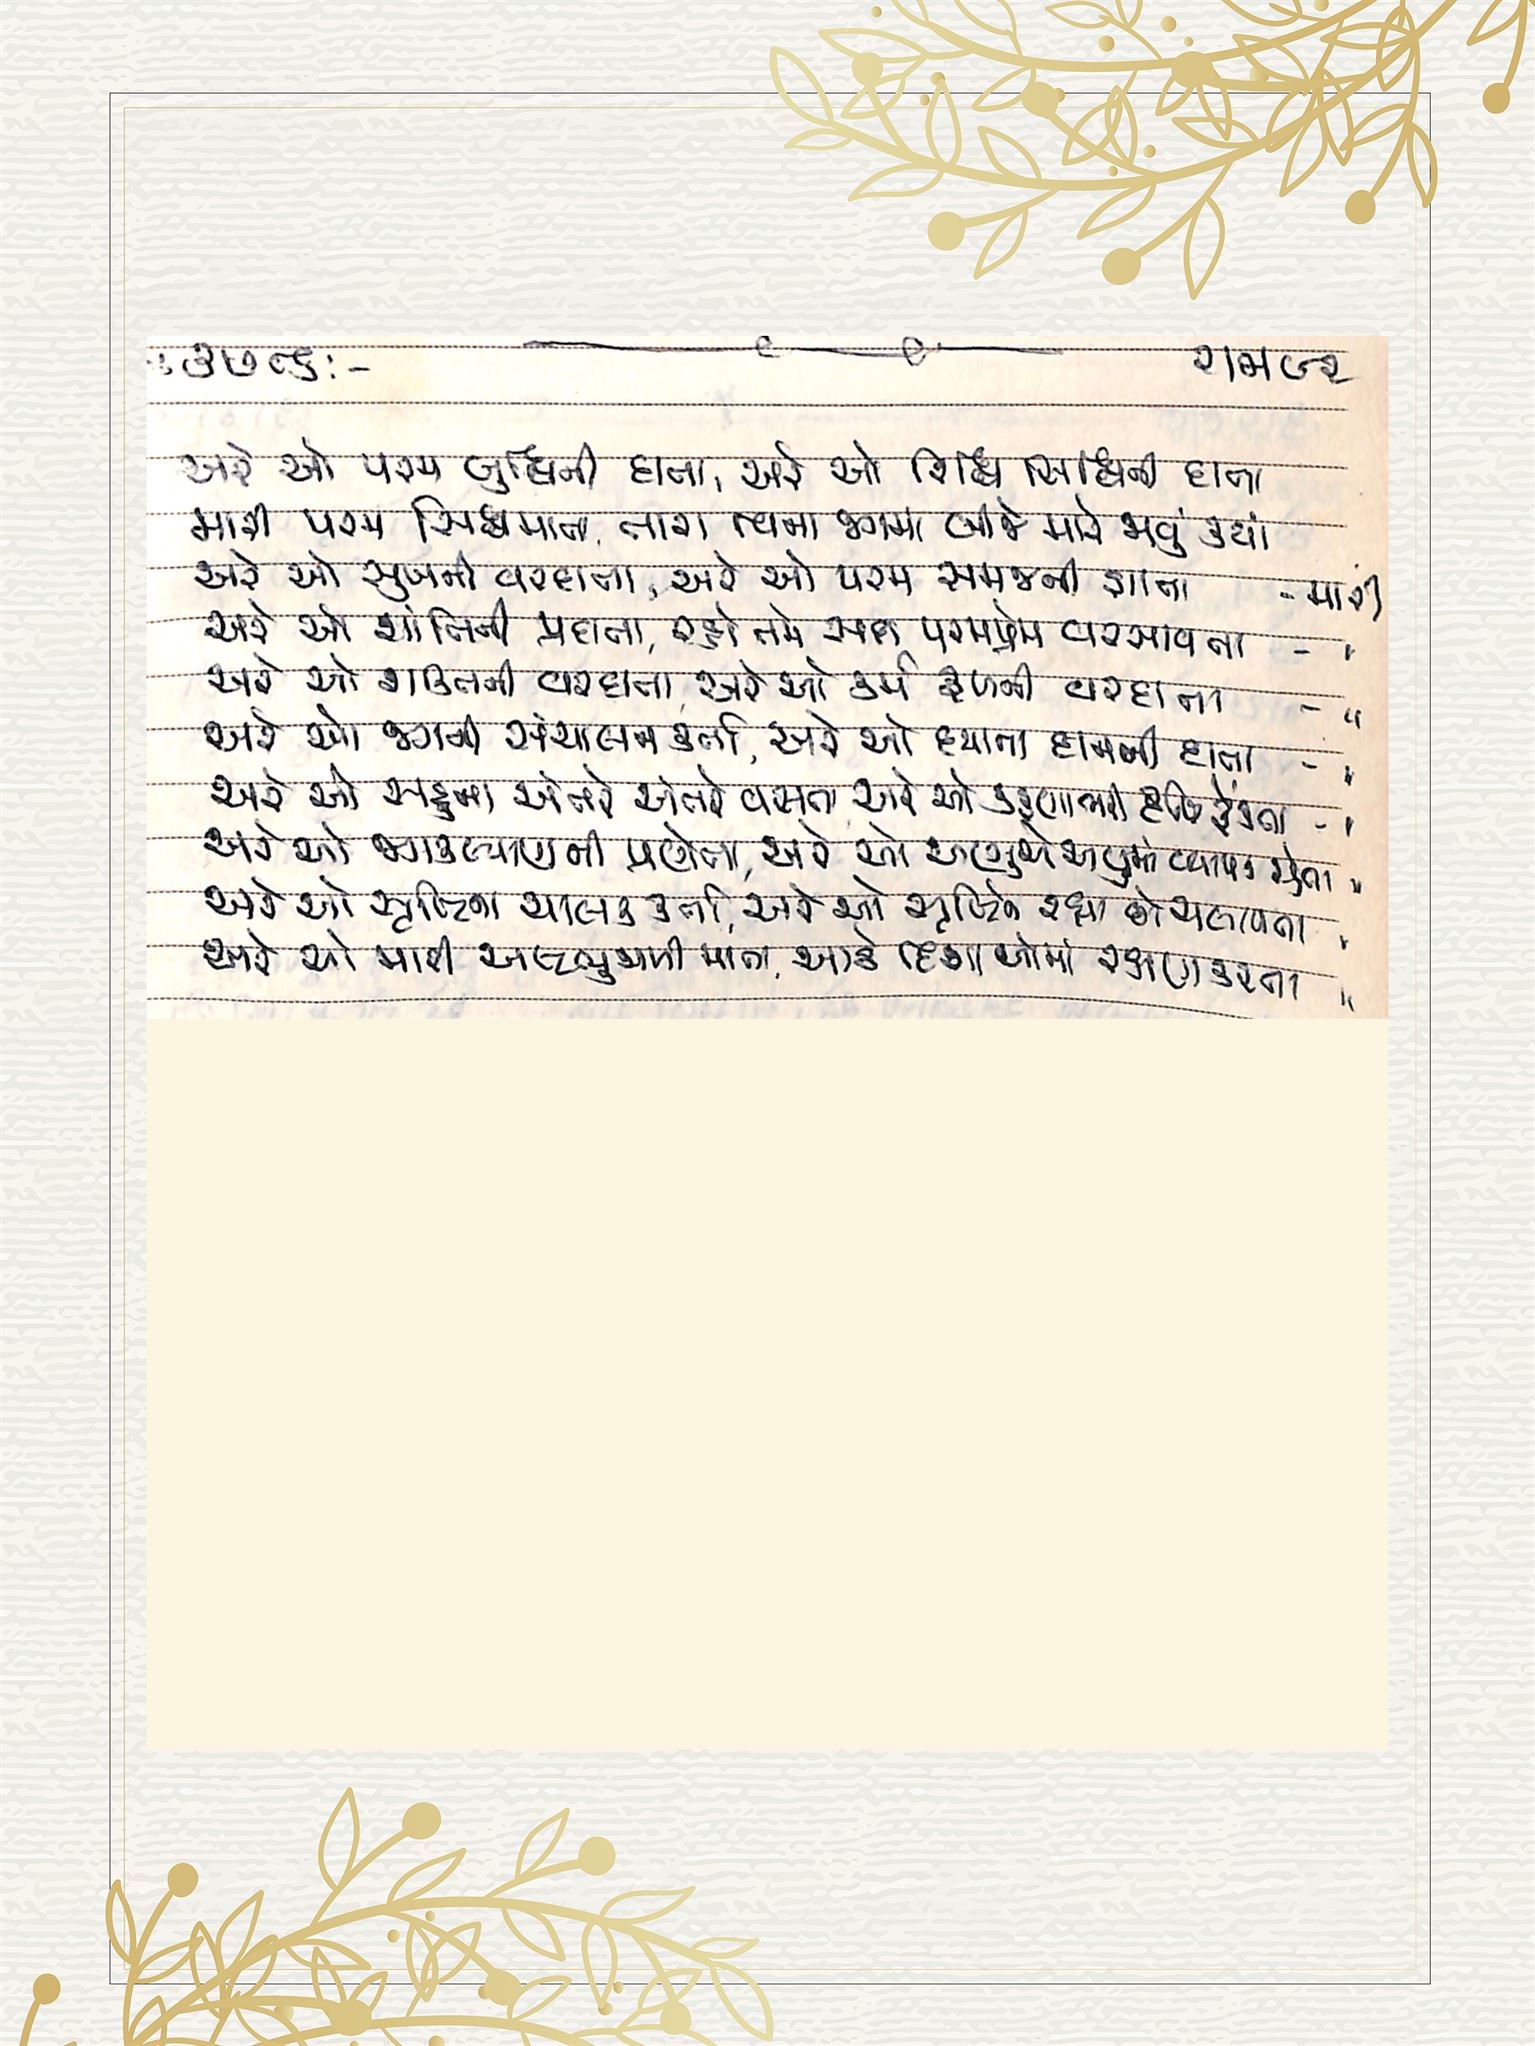 રામજર
અરે ઓ પરમ બુધ્ધિની દાતા, અરે ઓ રિધ્ધિ સિધ્ધિની દાતા
મારી પરમ સિધ્ધમાતા, તારા વિના જગમાં બીજે મારે જવું કયાં
અરે ઓ સુખની વરદાતા, અરે ઓ પરમ સમજની જ્ઞાતા - મારી
અરે ઓ શાંતિની પ્રદાતા, રહો તમે સદા પરમપ્રેમ વરસાવતા - "
અરે ઓ શકિતની વરદાતા, અરે ઓ કર્મ ફળની વરદાતા - "
અરે ઓ જગની સંચાલન કર્તા, અરે ઓ દયાના દાનની દાતા - "
અરે ઓ સહુના અંતરે અંતરે વસતા, અરે ઓ કરૂણાભરી દ્રષ્ટિ ફેંકતા - "
અરે ઓ જગકલ્યાણની પ્રણેતા, અરે ઓ અણુએ અણુમાં વ્યાપક "
અરે ઓ સૃષ્ટિના ચાલક કર્તા, અરે ઓ સૃષ્ટિને રક્ષી ચલાવતા "
અરે ઓ મારી માતા, આઠે દિશાઓમાં રક્ષણ કરતા "